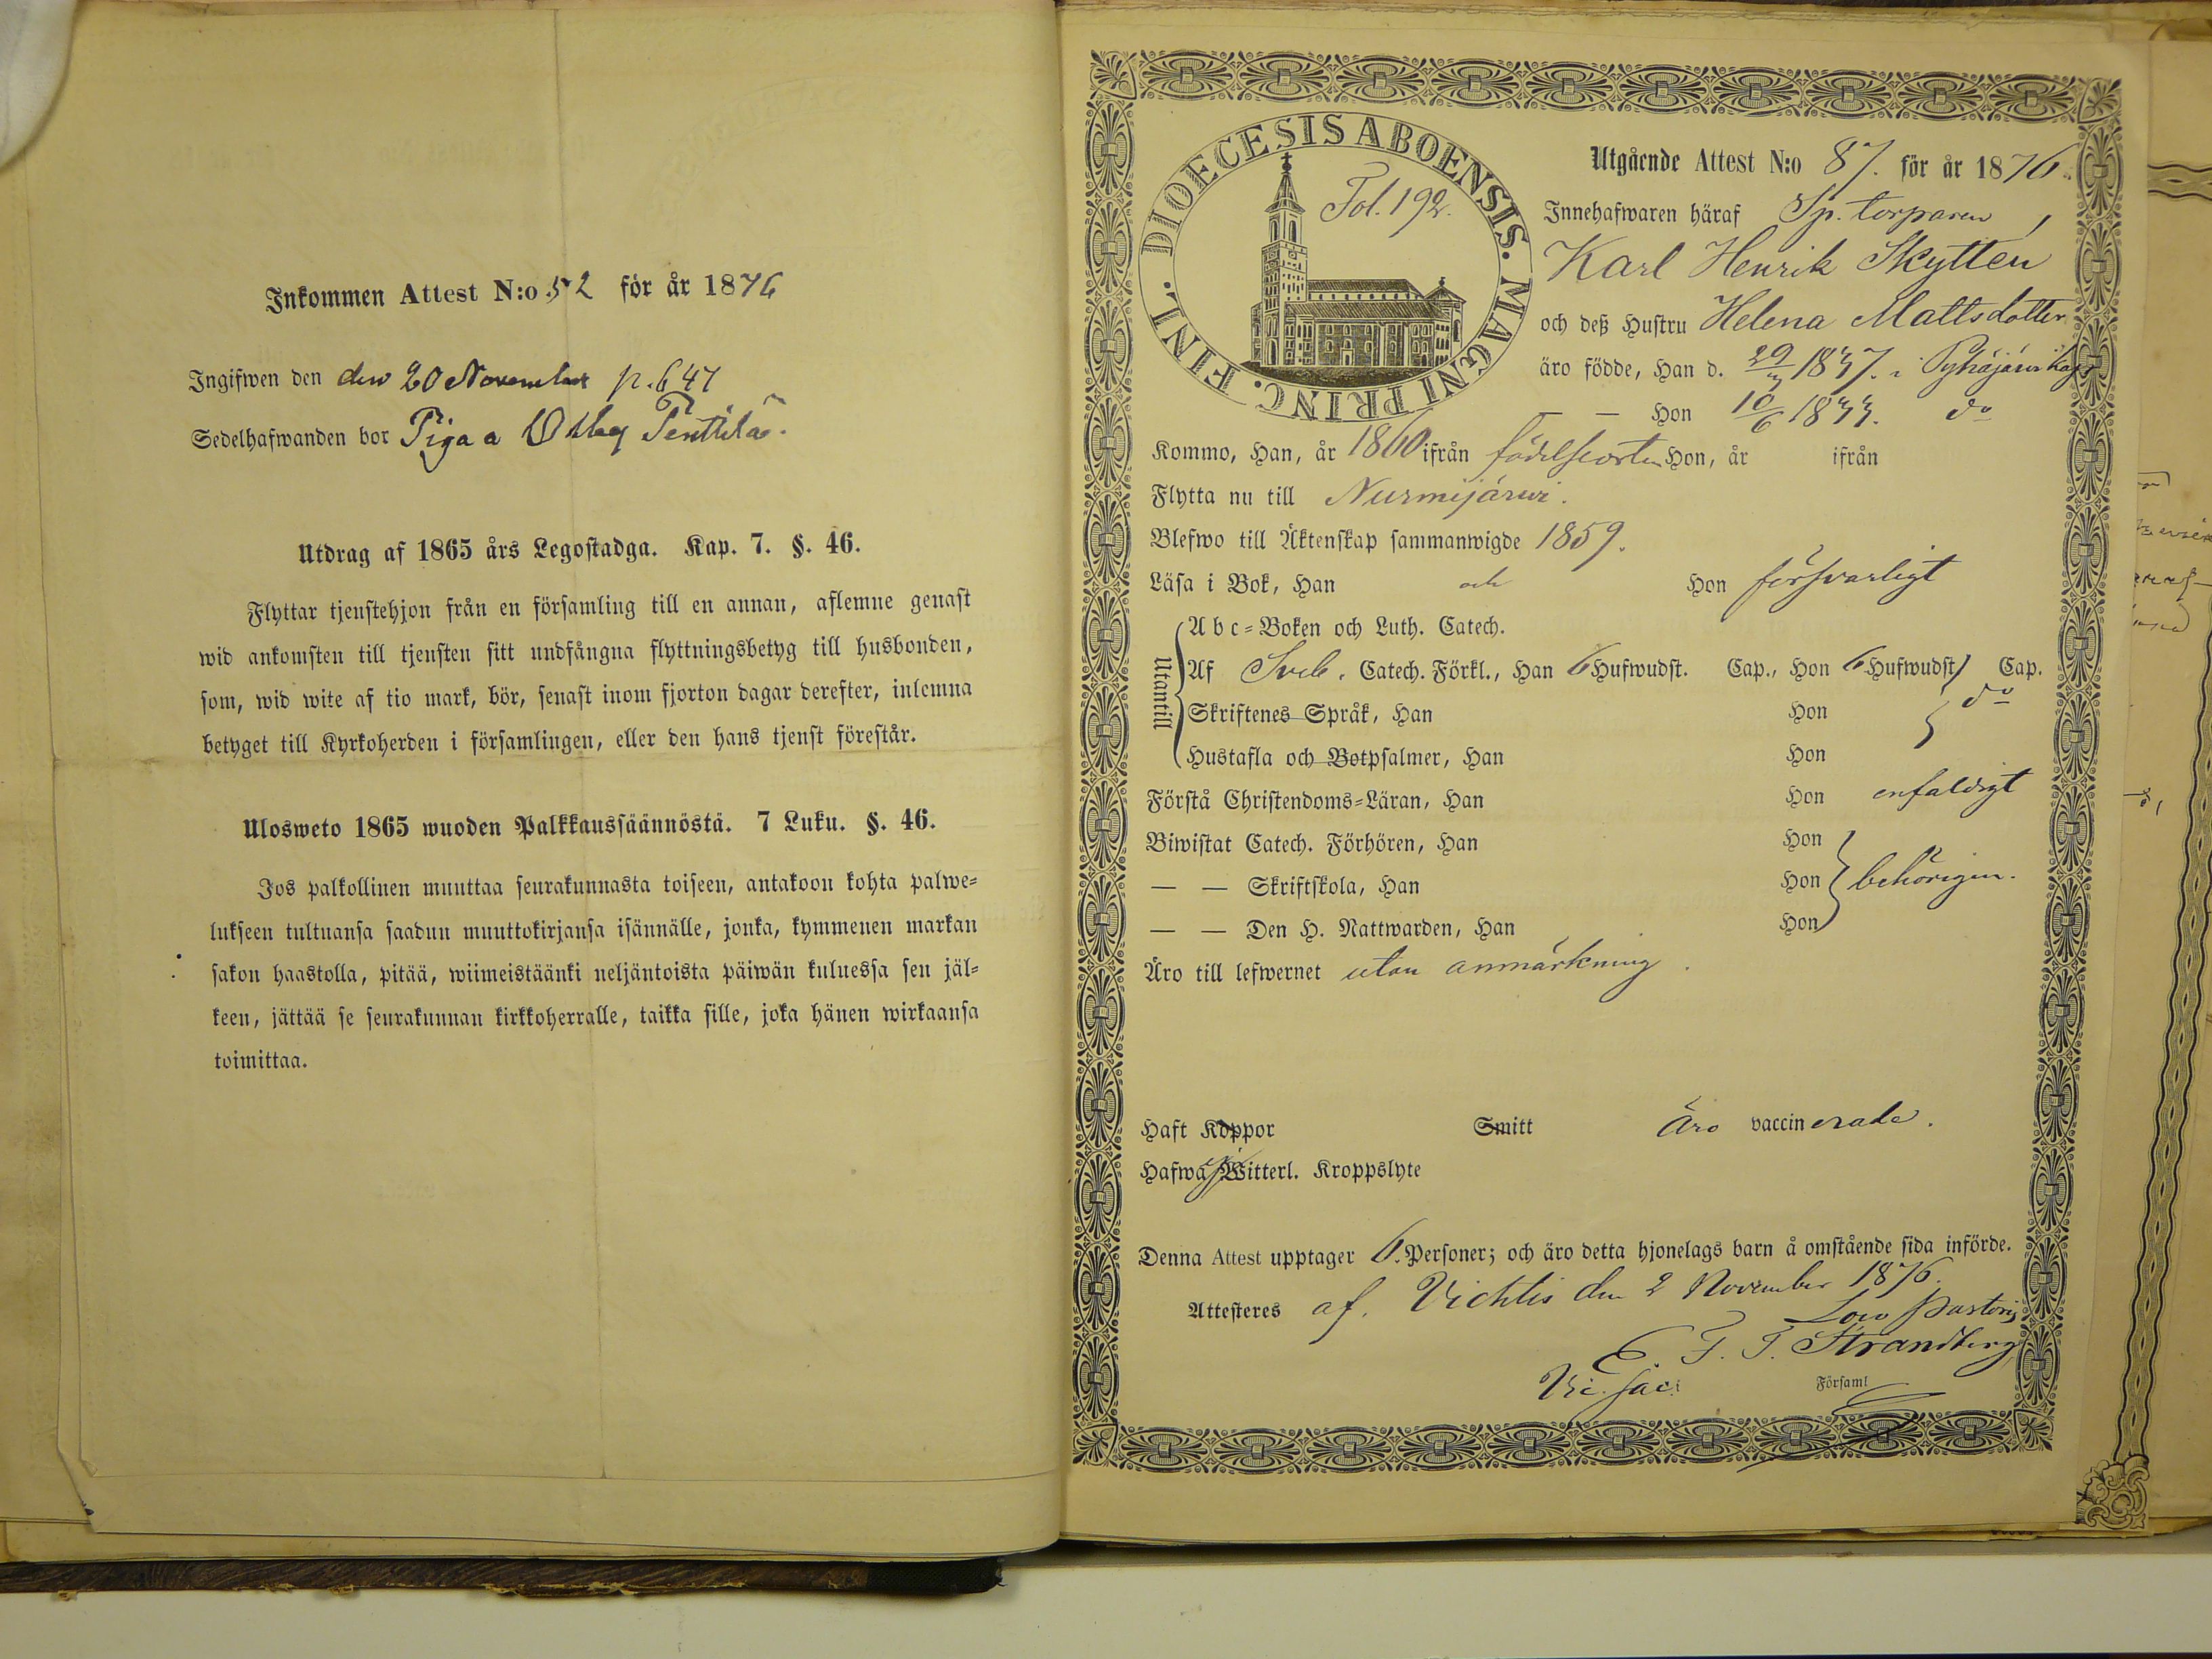 Inkommen Attest N:o 52 för år 1876
Ingifwen den den 20 November p. 647
Sedelhafwanden bor Piga a Ollag Penttilä.
Utdrag af 1865 års Legostadga. Kap. 7. §. 46.
Flyttar tjenstehjon från en församling till en annan, aflemne genast
wid ankomsten till tjensten sitt undfångna flyttningsbetyg till husbonden,
som, wid wite af tio mark, bör, senast inom fjorton dagar derefter, inlemna
betyget till Kyrkoherden i församlingen, eller den hans tjenst förestår.
Ulosweto 1865 wuoden Palkkaussäännöstä. 7 Luku. §. 46.
Jos palkollinen muuttaa seurakunnasta toiseen, antakoon kohta palwe-
lukseen tultuansa saadun muuttokirjansa isännälle, jonka, kymmenen markan
sakon haastolla, pitää, wiimeistäänki neljäntoista päiwän kuluessa sen jäl-
keen, jättää se seurakunnan kirkkoherralle, taikka sille, joka hänen wirkaansa
toimittaa.
DIOECESIS ABOENSIS. MAGNI PRINC. FINL.
Fol. 192.
Utgående Attest N:o 87. för år 1876.
Innehafwaren häraf Sp. torparen,
Karl Henrik Skyttén
och deß Hustru Helena Mattsdotter
äro födde, Han d. 29/3 1837. i Pyhäjärvi
— — Hon 10/6 1833. do
Kommo, Han, år 1860 ifrån födelseorten Hon, år ifrån
Flytta nu till Nurmijärvi.
Blefwo till Äktenskap sammanwigde 1859.
Läsa i Bok, Han och Hon försvarligt
Utantill
Abc-Boken och Luth. Catech.
Af Sveb. Catech. Förkl., Han 6 Hufwudst. Cap., Hon 6 Hufwudst. Cap.
Skriftenes Språk, Han Hon do
Hustafla och Botpsalmer, Han Hon
Förstå Christendoms-Läran, Han Hon enfaldigt
Biwistat Catech. Förhören, Han Hon
— — Skriftskola, Han Hon behörigen.
— — Den H. Nattwarden, Han Hon
Äro till lefwernet utan anmärkning.
Haft Koppor Smitt Äro vaccinerade.
Hafwa Witterl. Kroppslyte
Denna Attest upptager 6. Personer; och äro detta hjonelags barn å omstående sida införde.
Attesteres af. Vichtis den 2 November 1876.
Loco Pastoris
E. F. T. Strandberg
Vic. sac: Församl